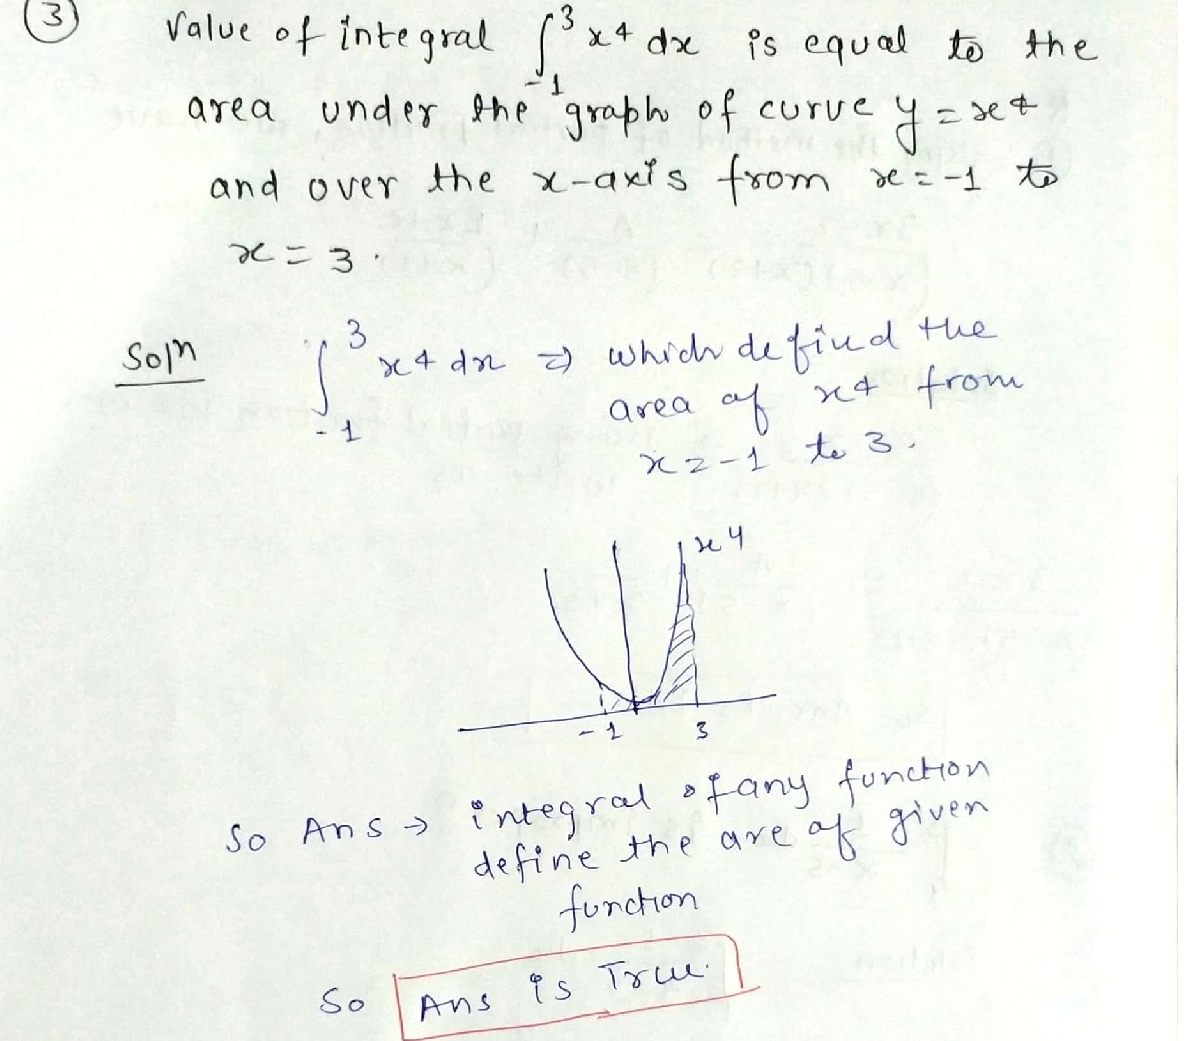 3
Value of integral ∫₋₁³ x⁴ dx is equal to the
area under the graph of curve y = x⁴
and over the x-axis from x = -1 to
x = 3.
Soln ∫₋₁³ x⁴ dx ⇒ which defind the
area of x⁴ from
x = -1 to 3.
x⁴
-1 3
So Ans → integral of any function
define the are of given
function
So Ans is True.